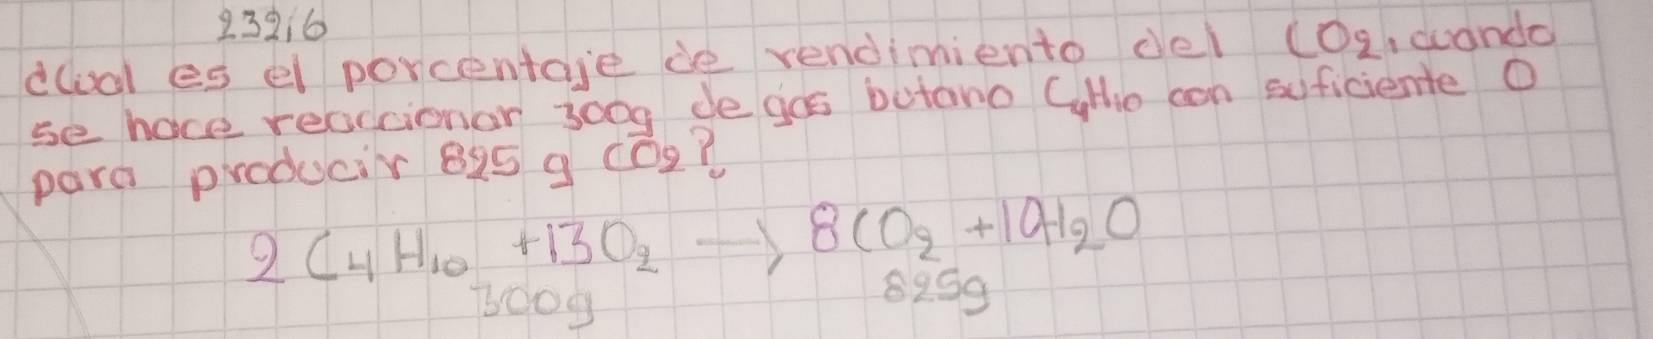 232,6
¿Cual es el porcentaje de rendimiento del CO2, cuando
se hace reaccionar 300g de gas butano C4H10 con suficiente O
para producir 825 g CO2?
2 C4H10 + 13O2 → 8CO2 + 10H2O
300g 825g